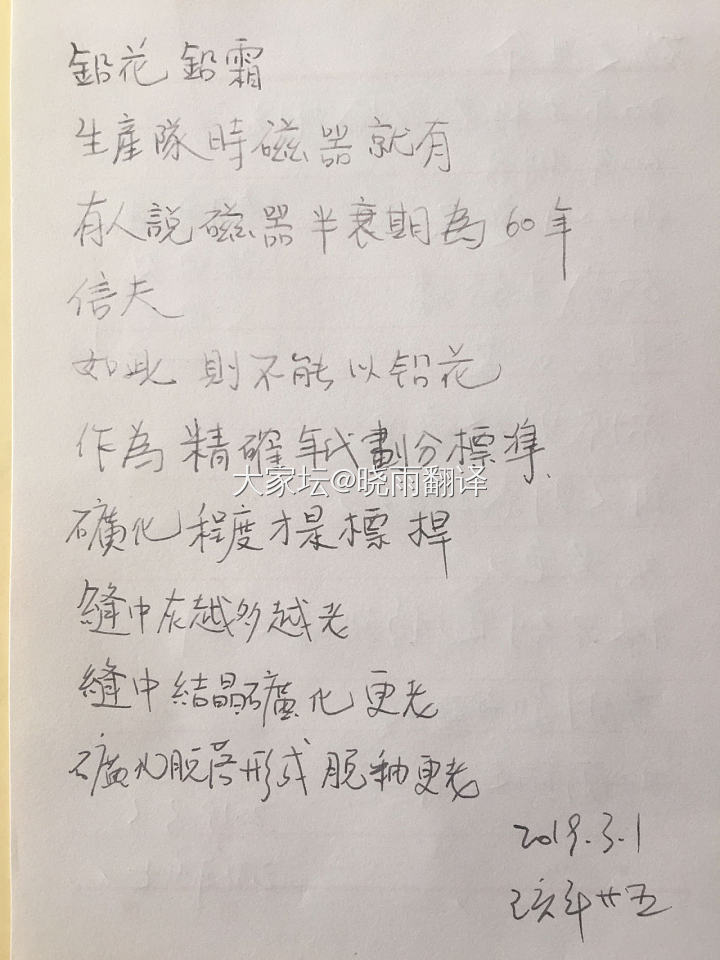 鉛花 鉛霜
生產隊時磁器就有
有人說磁器半衰期為60年
信夫
如此 則不能以铅花
作為精確年代劃分標準
大家坛@晓雨翻译
礦化程度才是標桿
縫中灰越多越老
縫中結晶礦化更老
礦化脱落形成脱釉更老
2019.3.1
己亥年廿五